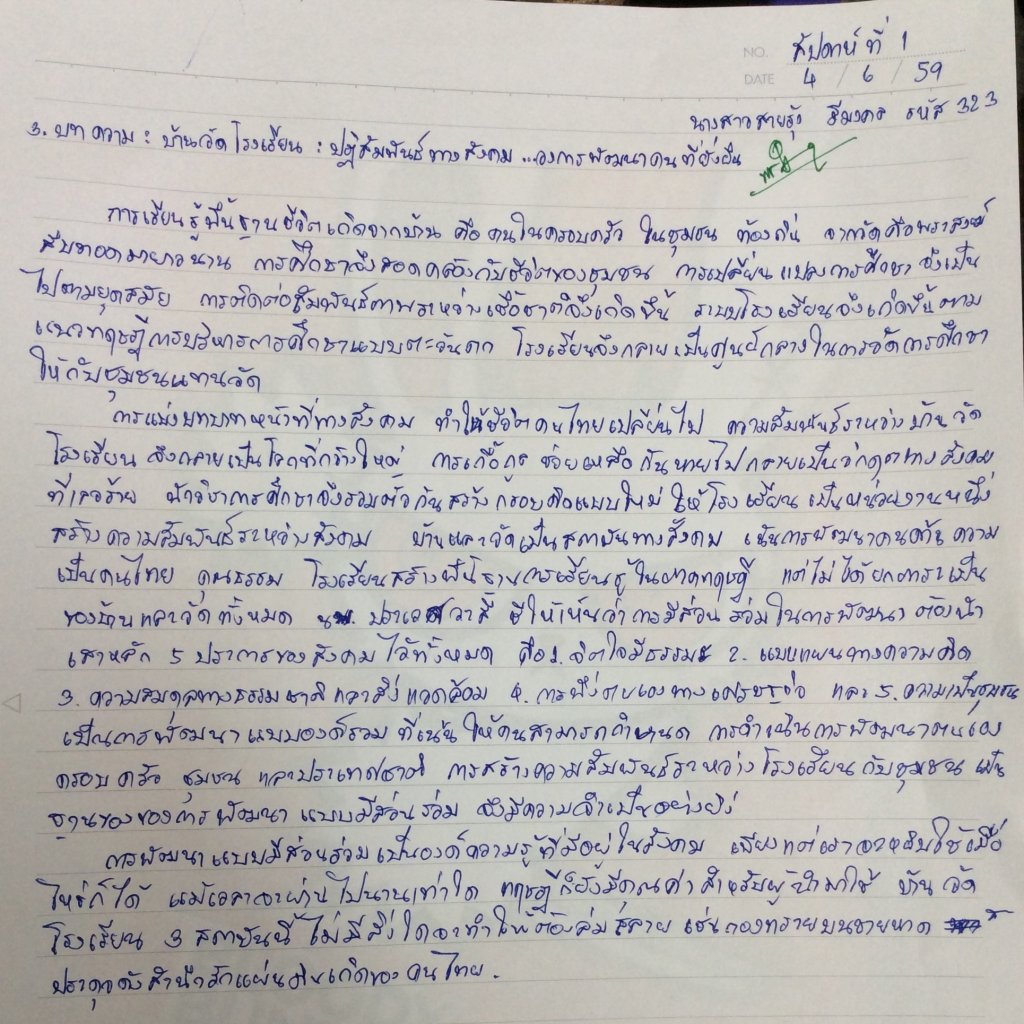 NO. สัปดาห์ที่ 1
DATE 4 / 6 / 59
นางสาวสายรุ้ง ธีมงคล รหัส 323
3. บทความ : บ้านวัดโรงเรียน : ปฏิสัมพันธ์ทางสังคม ...องการพัฒนาคนที่ยั่งยืน
การเรียนรู้พื้นฐานชีวิตเกิดจากบ้าน คือ คนในครอบครัว ในชุมชน ท้องถิ่น จากวัดคือพระสงฆ์
สืบทอดมายาวนาน การศึกษาจึงสอดคล้องกับชีวิตของชุมชน การเปลี่ยนแปลงการศึกษา จึงเป็น
ไปตามยุคสมัย การติดต่อสัมพันธ์ภาพระหว่างเชื้อชาติจึงเกิดขึ้น ระบบโรงเรียนจึงเกิดขึ้นตาม
แนวทฤษฎีการบริหารการศึกษาแบบตะวันตก โรงเรียนจึงกลายเป็นศูนย์กลางในการจัดการศึกษา
ให้กับชุมชนแทนวัด
การแบ่งบทบาทหน้าที่ทางสังคม ทำให้ชีวิตคนไทยเปลี่ยนไป ความสัมพันธ์ระหว่างบ้าน วัด
โรงเรียน จึงกลายเป็นโลกที่กว้างใหญ่ การเกื้อกูล ช่วยเหลือกันหายไปกลายเป็นวิกฤตทางสังคม
ที่เลวร้าย นักวิชาการศึกษาจึงรวมตัวกันสร้างกรอบคิดแบบใหม่ ให้โรงเรียนเป็นหน่วยงานหนึ่ง
สร้างความสัมพันธ์ระหว่างสังคม บ้านและวัดเป็นสถาบันทางสังคม เน้นการพัฒนาคนด้านความ
เป็นคนไทย คุณธรรม โรงเรียนสร้างพื้นฐานการเรียนรู้ในภาคทฤษฎี แต่ไม่ได้ยกภาระเป็น
ของบ้านและวัดทั้งหมด นพ. ประเวศ วะสี ชี้ให้เห็นว่าการมีส่วนร่วมในการพัฒนา ต้องนำ
เสาหลัก 5 ประการของสังคมไว้ทั้งหมด คือ 1. จิตใจมีธรรมะ 2. แบบแผนทางความคิด
3. ความสมดุลทางธรรมชาติและสิ่งแวดล้อม 4. การพึ่งตนเองทางเศรษฐกิจ และ 5. ความเป็นชุมชน
เป็นการพัฒนาแบบองค์รวม ที่เน้นให้คนสามารถกำหนด การดำเนินการพัฒนาตนเอง
ครอบครัว ชุมชน และประเทศชาติ การสร้างความสัมพันธ์ระหว่างโรงเรียนกับชุมชน เป็น
ฐานของของการพัฒนา แบบมีส่วนร่วม จึงมีความจำเป็นอย่างยิ่ง
การพัฒนาแบบมีส่วนร่วมเป็นองค์ความรู้ที่มีอยู่ในสังคม เพียงแต่เราจะหยิบใช้เมื่อ
ไหร่ก็ได้ แม้เวลาจะผ่านไปนานเท่าใด ทฤษฎีก็ยังมีคุณค่าสำหรับผู้นำมาใช้ บ้าน วัด
โรงเรียน 3 สถาบันนี้ ไม่มีสิ่งใดจะทำให้ต้องล่มสลาย เช่นกองทรายบนชายหาด
ปราดุจดังสำนึกรักแผ่นดินเกิดของคนไทย.